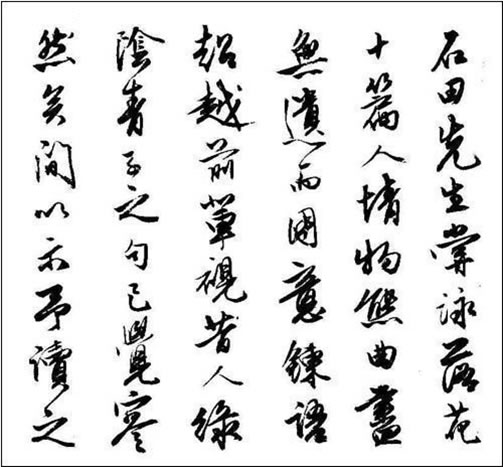 石田先生嘗詠落花
十篇人情物態曲盡
無遺而圖意鍊語
超越前輩視昔人綠
陰青子之句已覺寥
然矣間以示予讀之